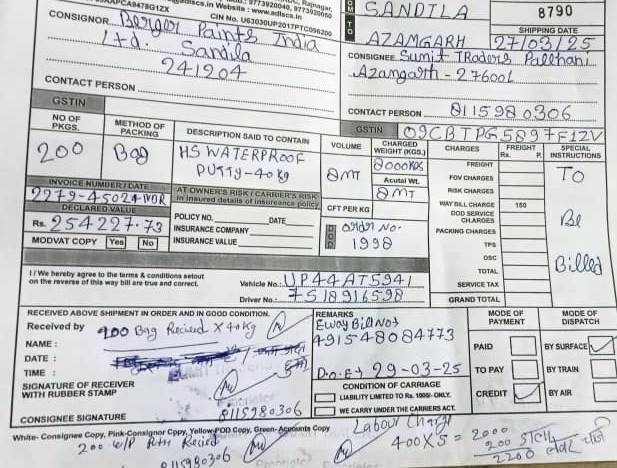 SANDILA
8790
AZAMGARH
SHIPPING DATE
27/03/25
CIN No. U63030UP2017PTC096200
CONSIGNOR Berger Paints India
Ltd. Sandila
241204
CONSIGNEE Sumit TRaders Palthani
Azamgarh - 276001
CONTACT PERSON
CONTACT PERSON 8115980306
GSTIN
GSTIN 09CBTPG5897F1ZV
NO OF PKGS.
METHOD OF PACKING
DESCRIPTION SAID TO CONTAIN
VOLUME
CHARGED WEIGHT (KGS.)
CHARGES
FREIGHT Rs. P.
SPECIAL INSTRUCTIONS
200
Bag
HS WATERPROOF
PUTTY-40 kg
8MT
8000KGS
Acutal Wt.
8MT
FREIGHT
FOV CHARGES
RISK CHARGES
WAY BILL CHARGE 150
DOD SERVICE CHARGES
PACKING CHARGES
TPS
OSC
TOTAL
SERVICE TAX
GRAND TOTAL
To
Be
Billed
INVOICE NUMBER/DATE
DECLARED VALUE
Rs. 254227.73
MODVAT COPY Yes No
AT OWNER'S RISK / CARRIER'S RISK
in insured details of insurance policy
POLICY NO. DATE
INSURANCE COMPANY
INSURANCE VALUE
CFT PER KG
DOD
Order No.
1998
I / We hereby agree to the terms & conditions setout
on the reverse of this way bill are true and correct.
Vehicle No.: UP44AT5941
Driver No.: 7518916598
RECEIVED ABOVE SHIPMENT IN ORDER AND IN GOOD CONDITION.
Received by 200 Bag Recived X 40Kg
NAME :
DATE :
TIME :
SIGNATURE OF RECEIVER
WITH RUBBER STAMP
8115980306
CONSIGNEE SIGNATURE
REMARKS
Eway Bill No:
491548084773
D.O.E 29-03-25
CONDITION OF CARRIAGE
LIABILITY LIMITED TO Rs. 1000/- ONLY.
WE CARRY UNDER THE CARRIERS ACT.
MODE OF PAYMENT
MODE OF DISPATCH
PAID
BY SURFACE
TO PAY
BY TRAIN
CREDIT
BY AIR
White- Consignee Copy, Pink-Consignor Copy, Yellow-POD Copy, Green- Accounts Copy
Labour Charge
400X5 = 2000
200
2200
200 W/P Putti Recied
8115980306